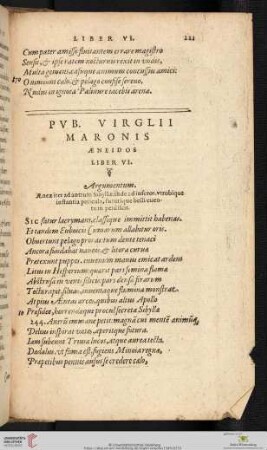 LIBER VI. 221
Cum pater amisso fluitantem errare magistro
Sensit, & ipse ratem nocturnis rexit in undis,
Multa gemens, casuque animum concussus amici:
870 O nimium cælo, & pelago confise sereno,
Nudus in ignota Palinure iacebis arena.
PVB. VIRGLII
MARONIS
ÆNEIDOS
LIBER VI.
Argumentum.
instantia pericula, futurique belli
Sic fatur lacrymans, classique immittit habenas.
Et tandem Euboicis Cumarum allabitur oris.
Obuertunt pelago proras: tum dente tenaci
Ancora fundabat naues, & litora curuæ
Prætexunt puppes. iuuenum manus emicat ardens
Litus in Hesperium: quærit pars semina flammæ
Abstrusa in venis silicis: pars densa ferarum
Tecta rapit siluas, inuentaque flumina monstrat.
At pius Aeneas arces, quibus altus Apollo
10 Præsidet, horrendæque procul secreta Sibyllæ
Antrū immane petit: magnā cui mentē animūq́;
Delius inspirat vates, aperitque futura.
Iam subeunt Triuiæ lucos, atque aurea tecta.
Dædalus, vt fama est, fugiens Minoia regna,
Præpetibus pennis ausus se credere cælo,